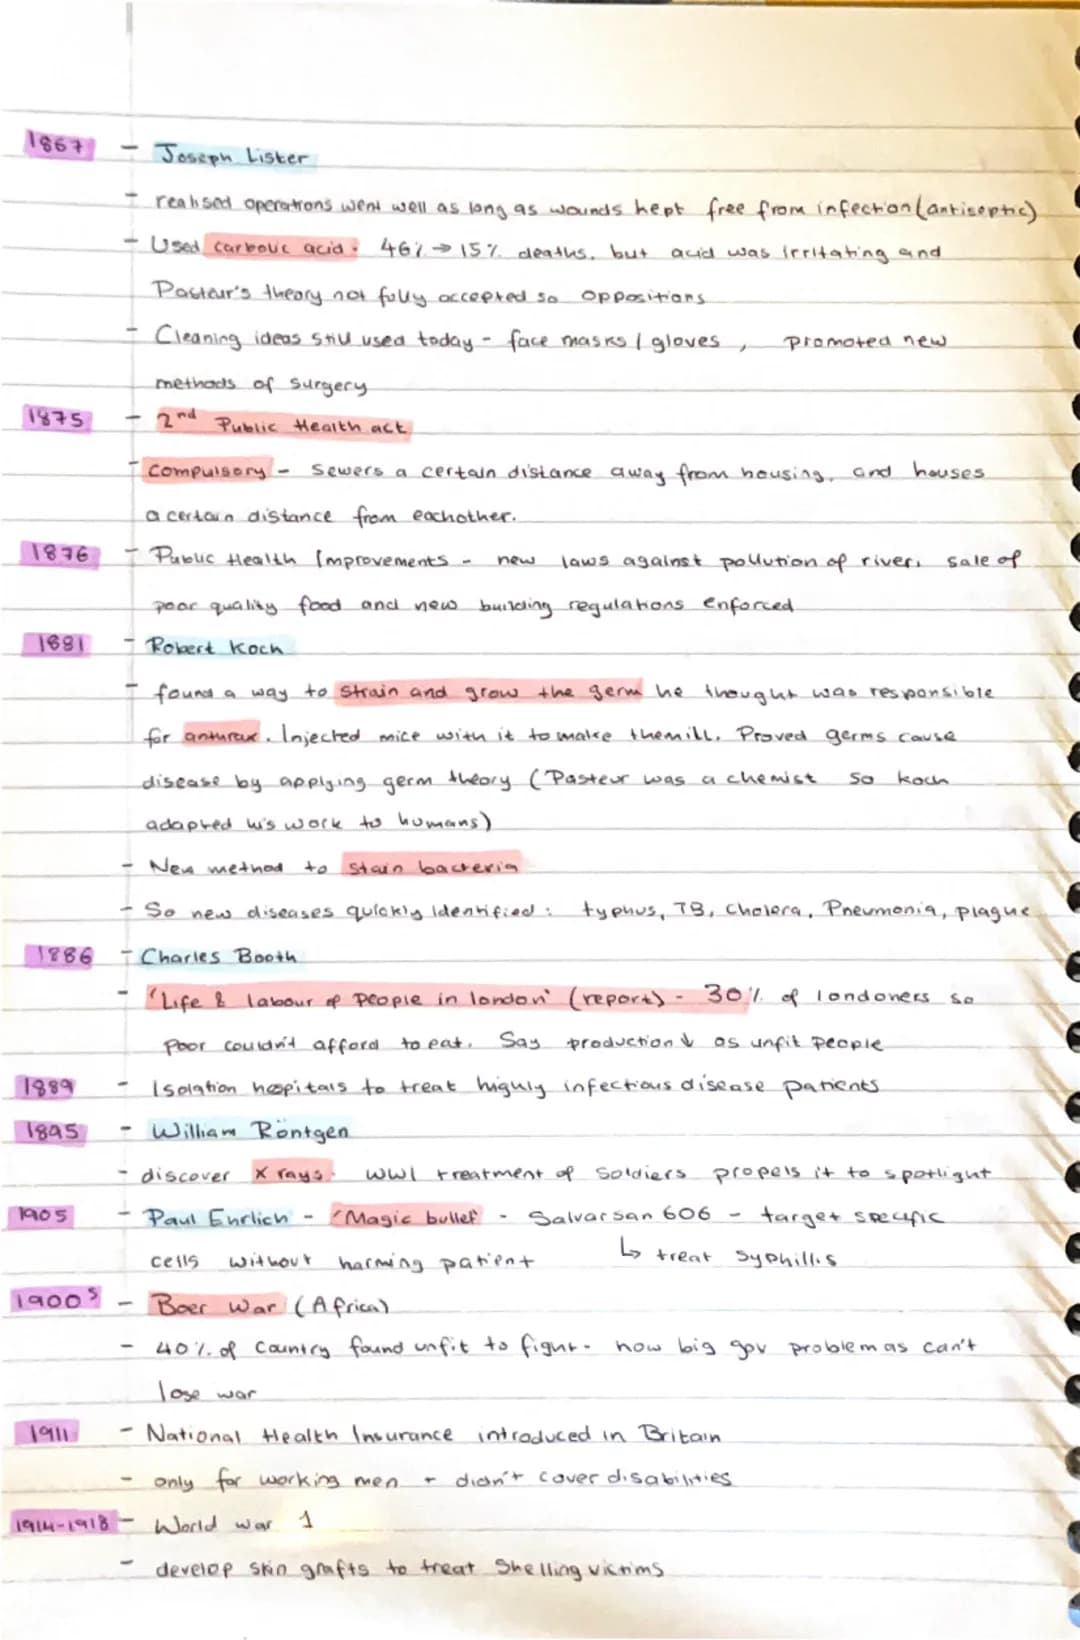 1867 - Joseph Lister
- realised operations went well as long as wounds kept free from infection (antiseptic)
- Used carbolic acid. 46% → 15% deaths. but acid was irritating and
Pasteur's theory not fully accepted so oppositions
- Cleaning ideas still used today - face masks / gloves, promoted new
methods of surgery
1875 - 2nd Public Health act
- Compulsory - sewers a certain distance away from housing, and houses
a certain distance from eachother.
1876 - Public Health Improvements - new laws against pollution of river, sale of
poor quality food and new building regulations enforced
1881 - Robert Koch
- found a way to strain and grow the germ he thought was responsible
for anthrax. Injected mice with it to make them ill. Proved germs cause
disease by applying germ theory (Pasteur was a chemist so koch
adapted his work to humans)
- New method to stain bacteria
- So new diseases quickly identified: typhus, TB, Cholera, Pneumonia, plague
1886 - Charles Booth
- 'Life & labour of People in london' (report) - 30% of londoners so
poor couldn't afford to eat. Say production ↓ as unfit people
1889 - Isolation hospitals to treat highly infectious disease patients
1895 - William Röntgen
- discover X rays. WW1 treatment of soldiers propels it to spotlight
1905 - Paul Ehrlich - 'Magic bullet' - Salvarsan 606 - target specific
cells without harming patient ↳ treat syphillis
1900s - Boer War (Africa)
- 40% of Country found unfit to fight - now big gov problem as can't
lose war
1911 - National Health Insurance introduced in Britain
- only for working men + didn't cover disabilities
1914-1918 - World war 1
- develop skin grafts to treat shelling victims